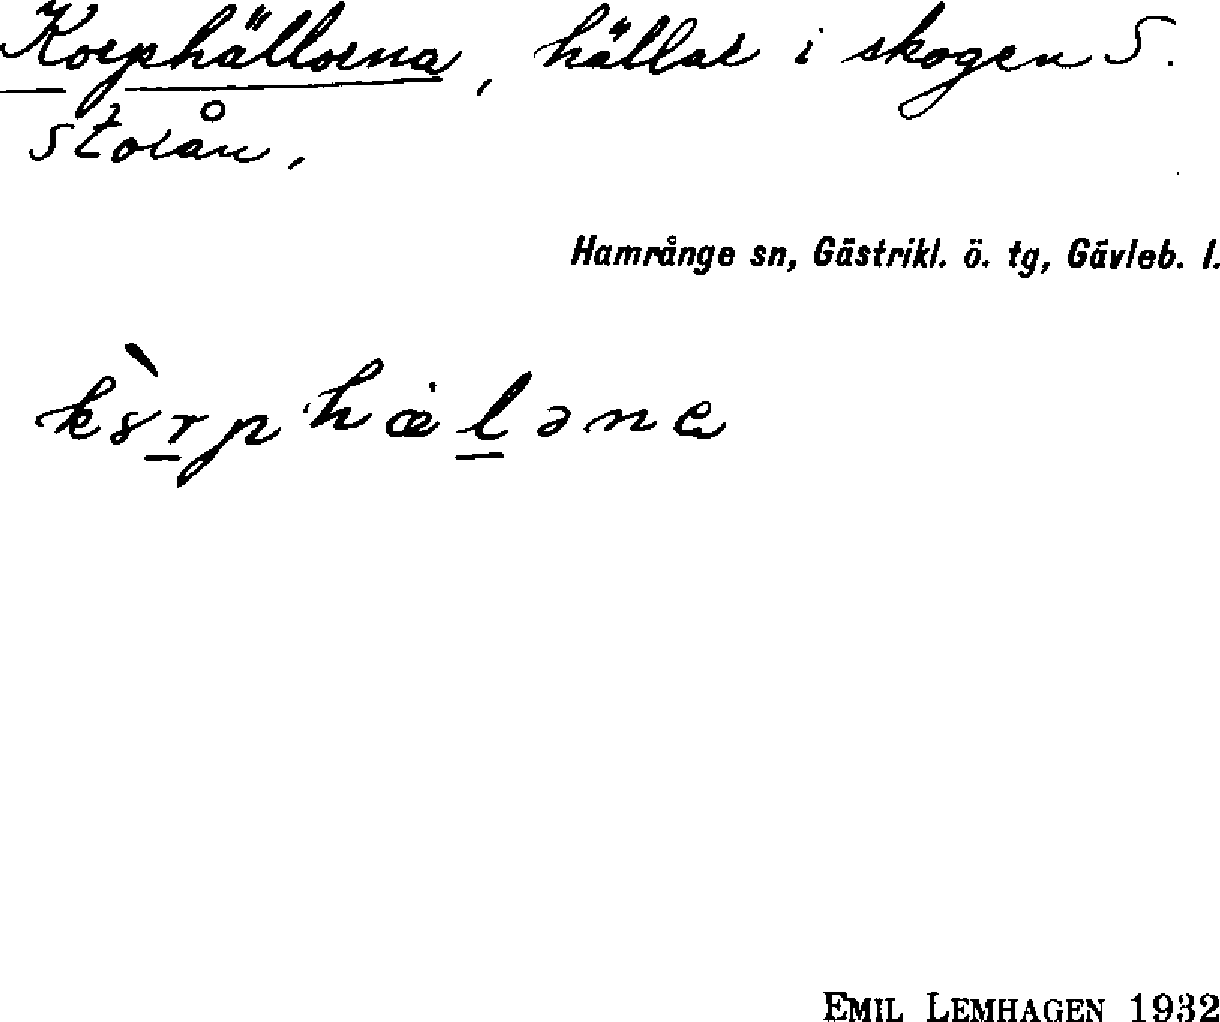 Korphällorna, hällar i skogen S.
Storån,
Hamrånge sn, Gästrikl. ö. tg, Gävleb. l.
EMIL LEMHAGEN 1932